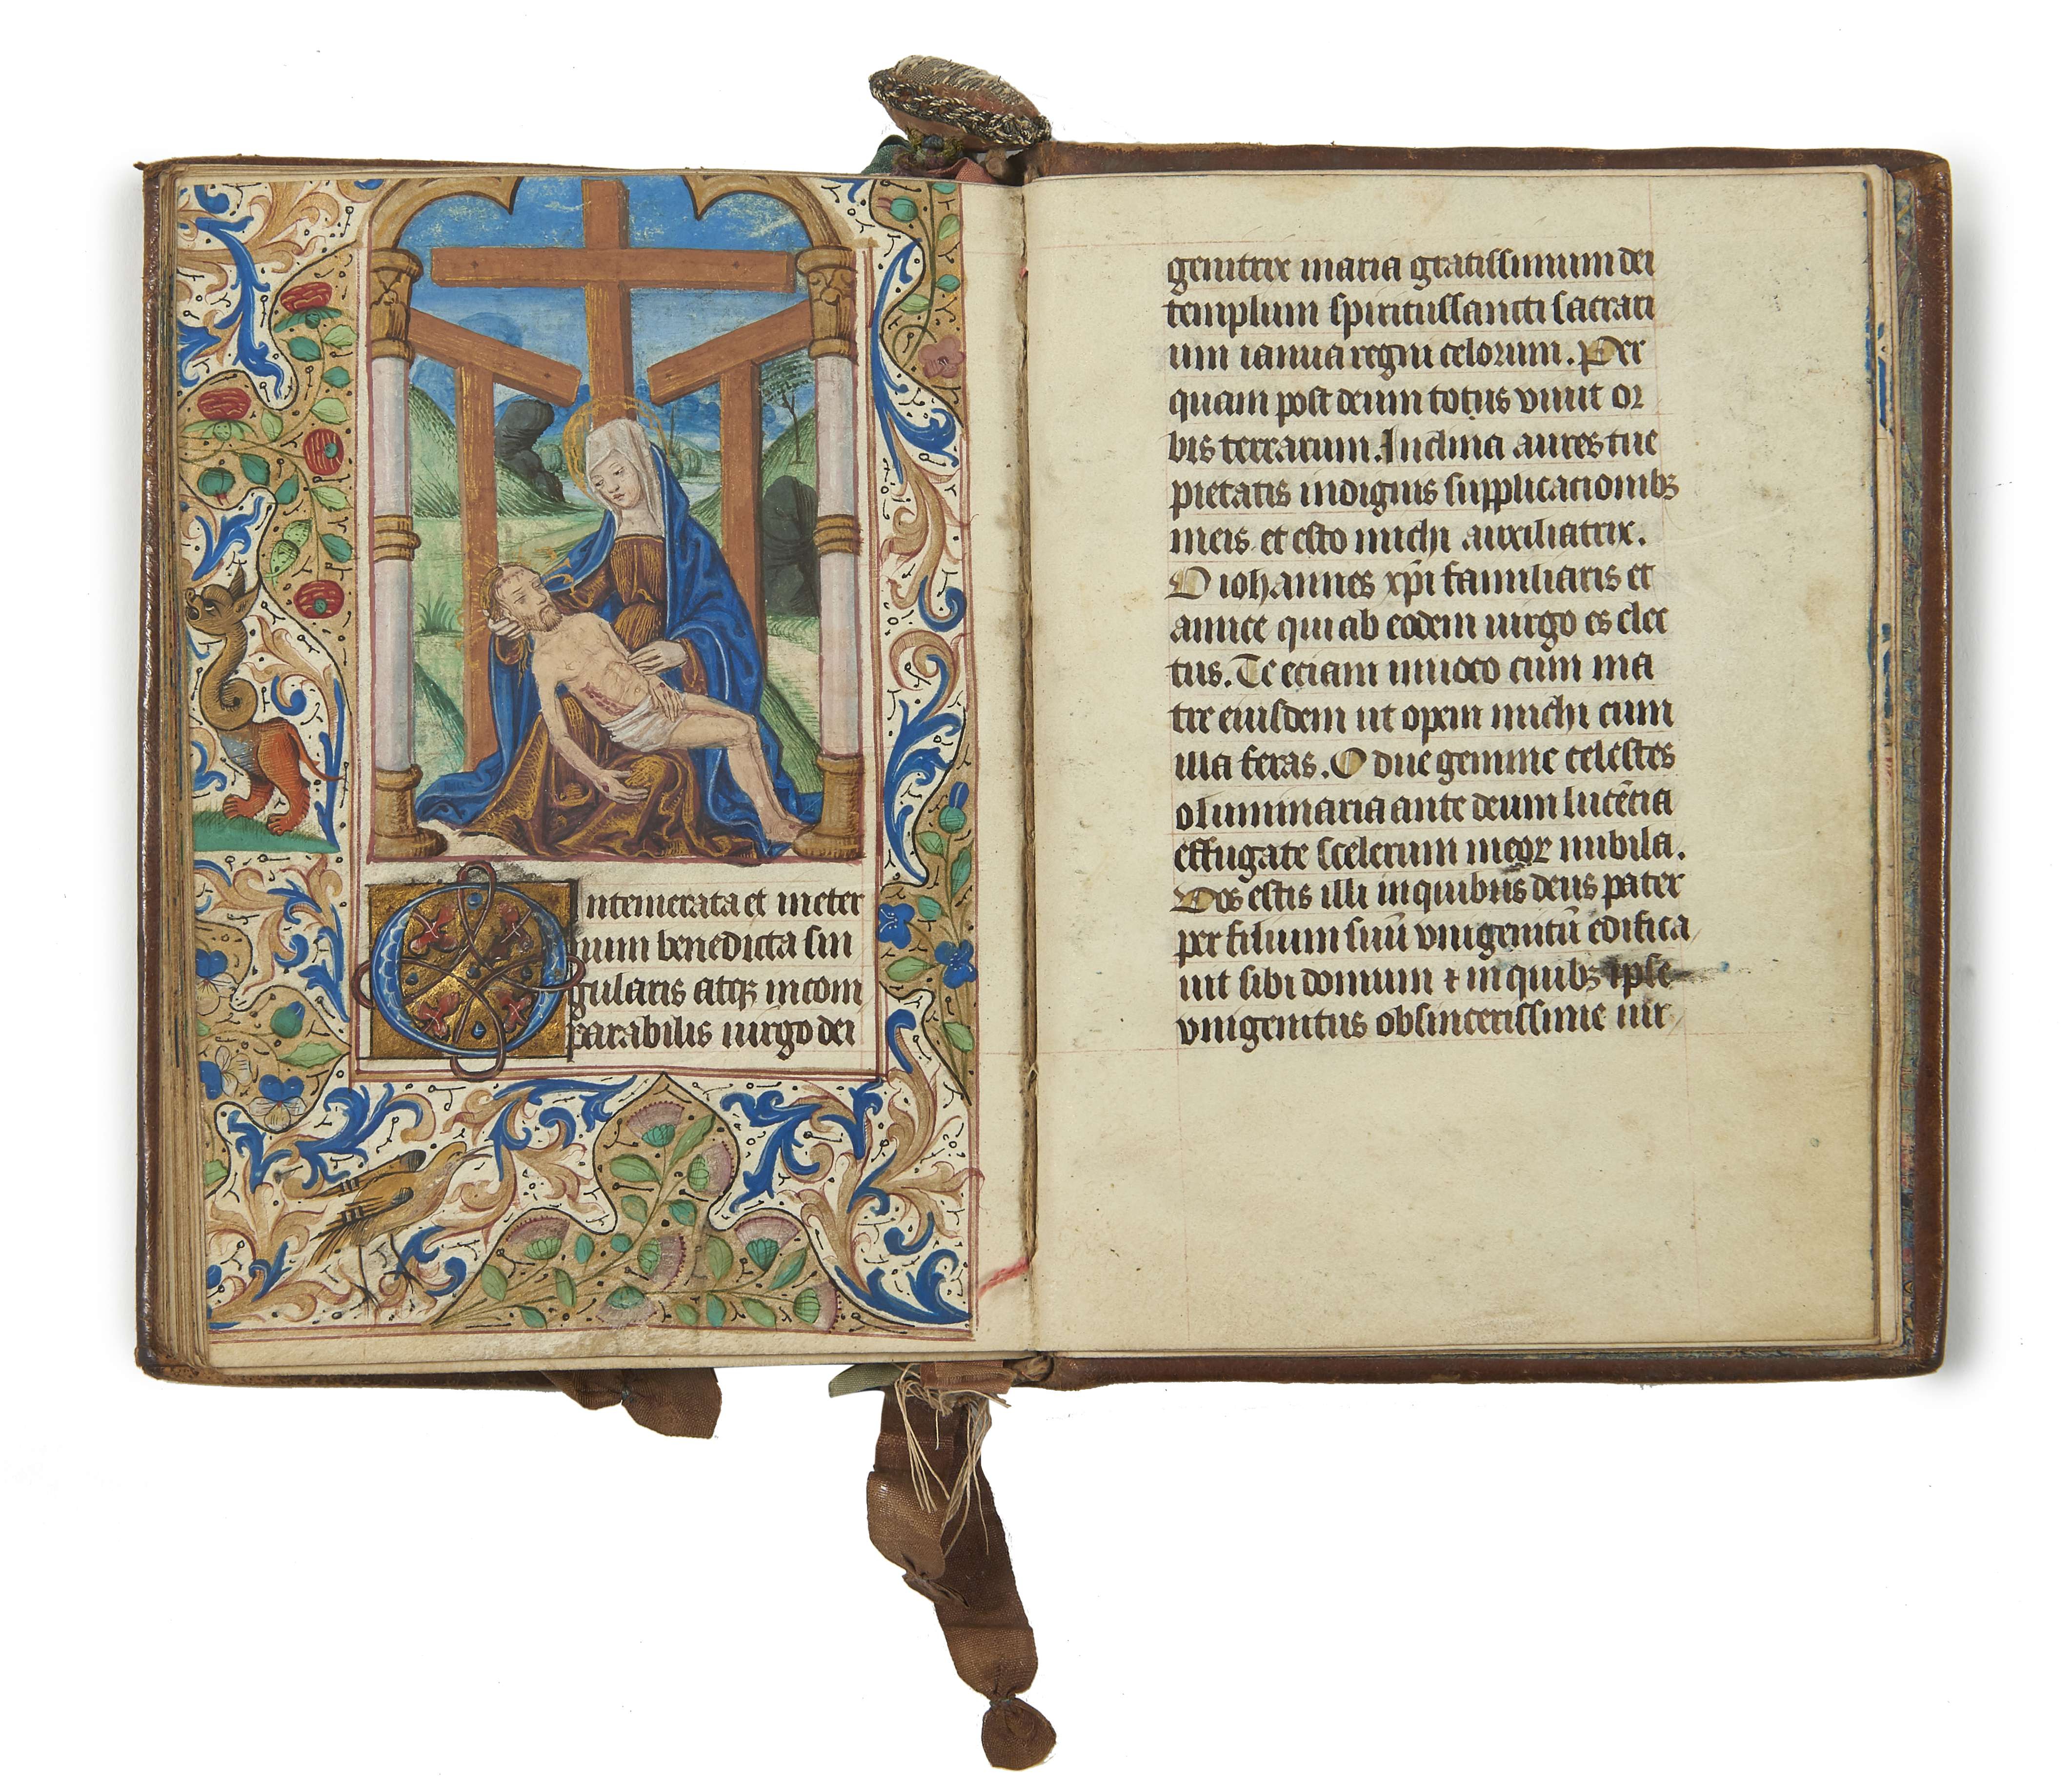 O Intemerata et in eter
num benedicta sin
gularis atqꝫ incom
parabilis uirgo dei
genitrix maria gratissimum dei
templum spiritussancti sacrari
um ianua regni celorum. Per
quam post deum totus viuit or
bis terrarum. Inclina aures tue
pietatis indignis supplicacionibꝫ
meis et esto michi auxiliatrix.
O iohannes xp̄i familiaris et
amice qui ab eodem uirgo es elec
tus. Te eciam inuoco cum ma
tre eiusdem ut opem michi cum
illa feras. O due gemme celestes
o luminaria ante deum lucētia
effugate scelerum meoꝝ nubila.
Vos estis illi in quibus deus pater
per filium suū vnigenitū edifica
uit sibi domum ⁊ in quibꝫ ipse
vnigenitus ob sincerissime uir